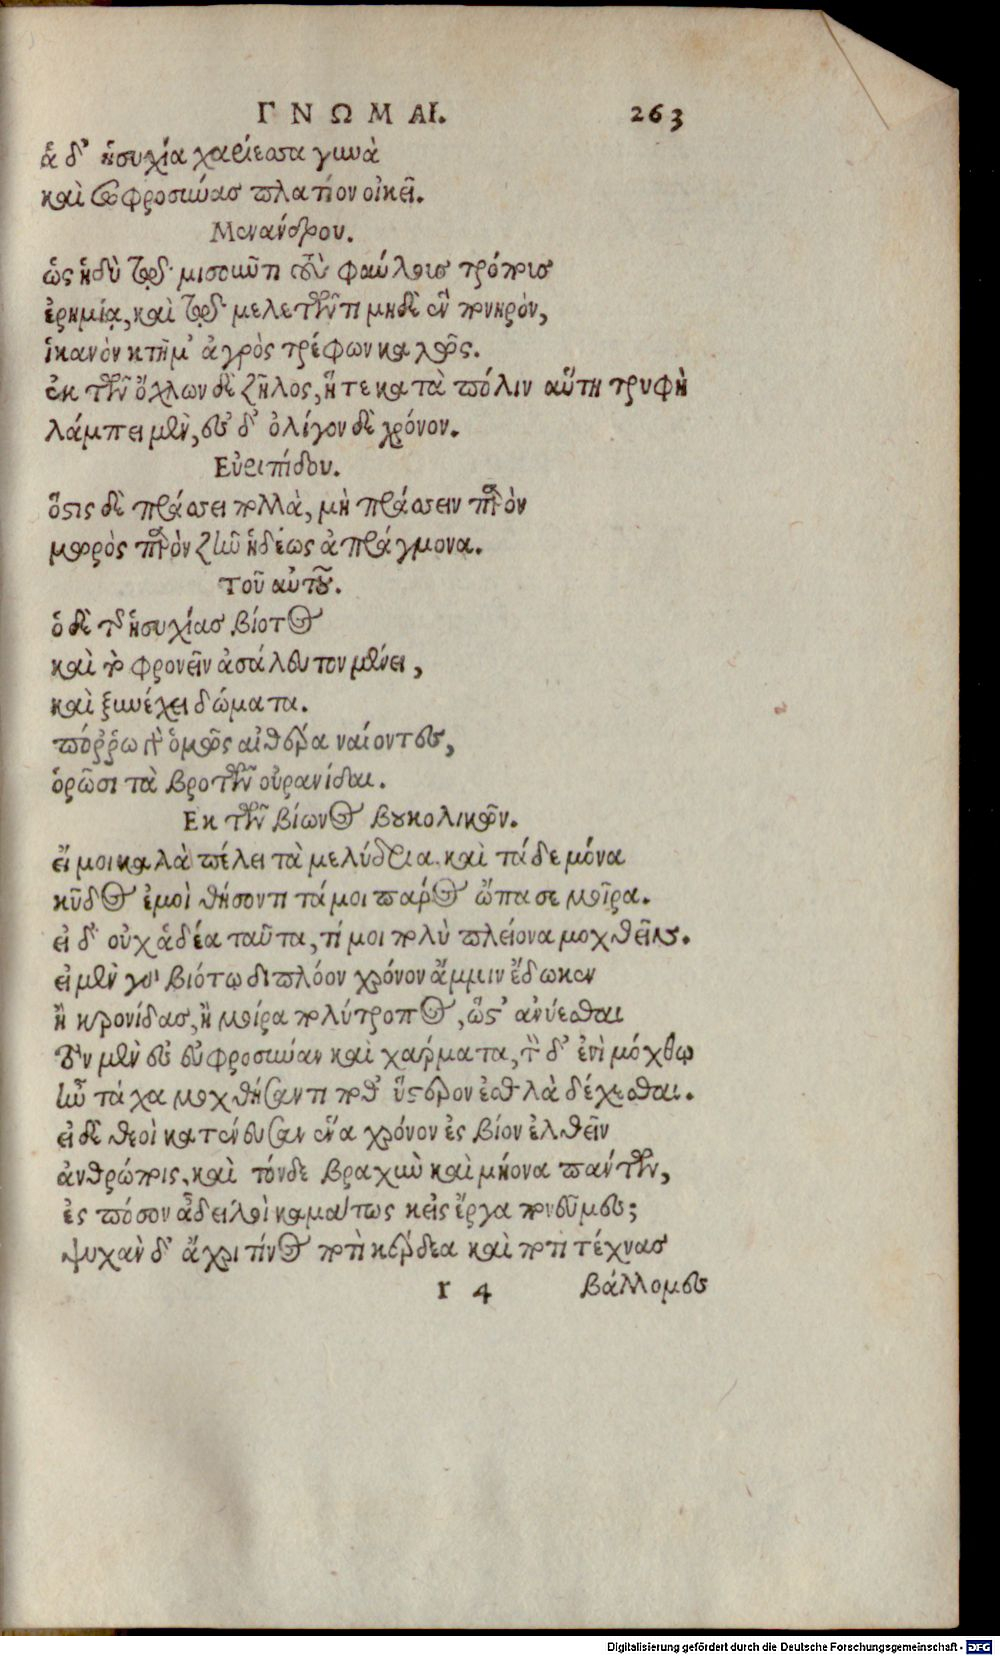 ΓΝΩΜΑΙ. 263
ἁ δ' ἡσυχία χαρίεσσα γυνὰ
καὶ σωφροσύνας πλατίον οἰκεῖ.
Μενάνδρου.
ὡς ἡδὺ τῷ μισοῦντι τοὺς φαύλους τρόπους
ἐρημία, καὶ τῷ μελετῶντι μηδὲ ἓν πονηρὸν,
ἱκανὸν κτῆμ' ἀγρὸς τρέφων καλῶς.
ἐκ τῶν ὄχλων δὲ ζῆλος, ἥ τε κατὰ πόλιν αὕτη τρυφὴ
λάμπει μὲν, ἐς δ' ὀλίγον δὲ χρόνον.
Εὐριπίδου.
ὅστις δὲ πράσσει πολλὰ, μὴ πράσσειν παρὸν
μωρὸς παρὸν ζῆν ἡδέως ἀπράγμονα.
Τοῦ αὐτοῦ.
ὁ δὲ τᾶς ἡσυχίας βίοτος
καὶ τὸ φρονεῖν ἀσάλευτον μένει,
καὶ ξυνέχει δώματα.
πόρρω γὰρ ὁμῶς αἰθέρα ναίοντες,
ὁρῶσι τὰ βροτῶν οὐρανίδαι.
Εκ τῶν βίωνος βουκολικῶν.
εἴ μοι καλὰ πέλει τὰ μελύδρια καὶ τάδε μόνα
κῦδος ἐμοὶ θήσοντι τά μοι πάρος ὤπασε μοῖρα.
εἰ δ' οὐχ ἁδέα ταῦτα, τί μοι πολὺ πλείονα μοχθεῖν.
εἰ μὲν γὰρ βιότω διπλόον χρόνον ἄμμιν ἔδωκεν
ἢ κρονίδας, ἢ μοίρα πολύτροπος, ὥστ' ἀνύεσθαι
τὸν μὲν ἐς εὐφροσύναν καὶ χάρματα, τὸν δ' ἐνὶ μόχθῳ
ἦν τάχα μοχθήσαντι ποθ' ὕστερον ἐσθλὰ δέχεσθαι.
εἰ δὲ θεοὶ κατένευσαν ἕνα χρόνον ἐς βίον ἐλθεῖν
ἀνθρώποις, καὶ τόνδε βραχὺν καὶ μήονα πάντων,
ἐς πόσον ἆ δειλοὶ καμάτως κεἰς ἔργα πονεῦμες;
ψυχὰν δ' ἄχρι τίνος ποτὶ κέρδεα καὶ ποτὶ τέχνας
r 4 βάλλομες
Digitalisierung gefördert durch die Deutsche Forschungsgemeinschaft - DFG